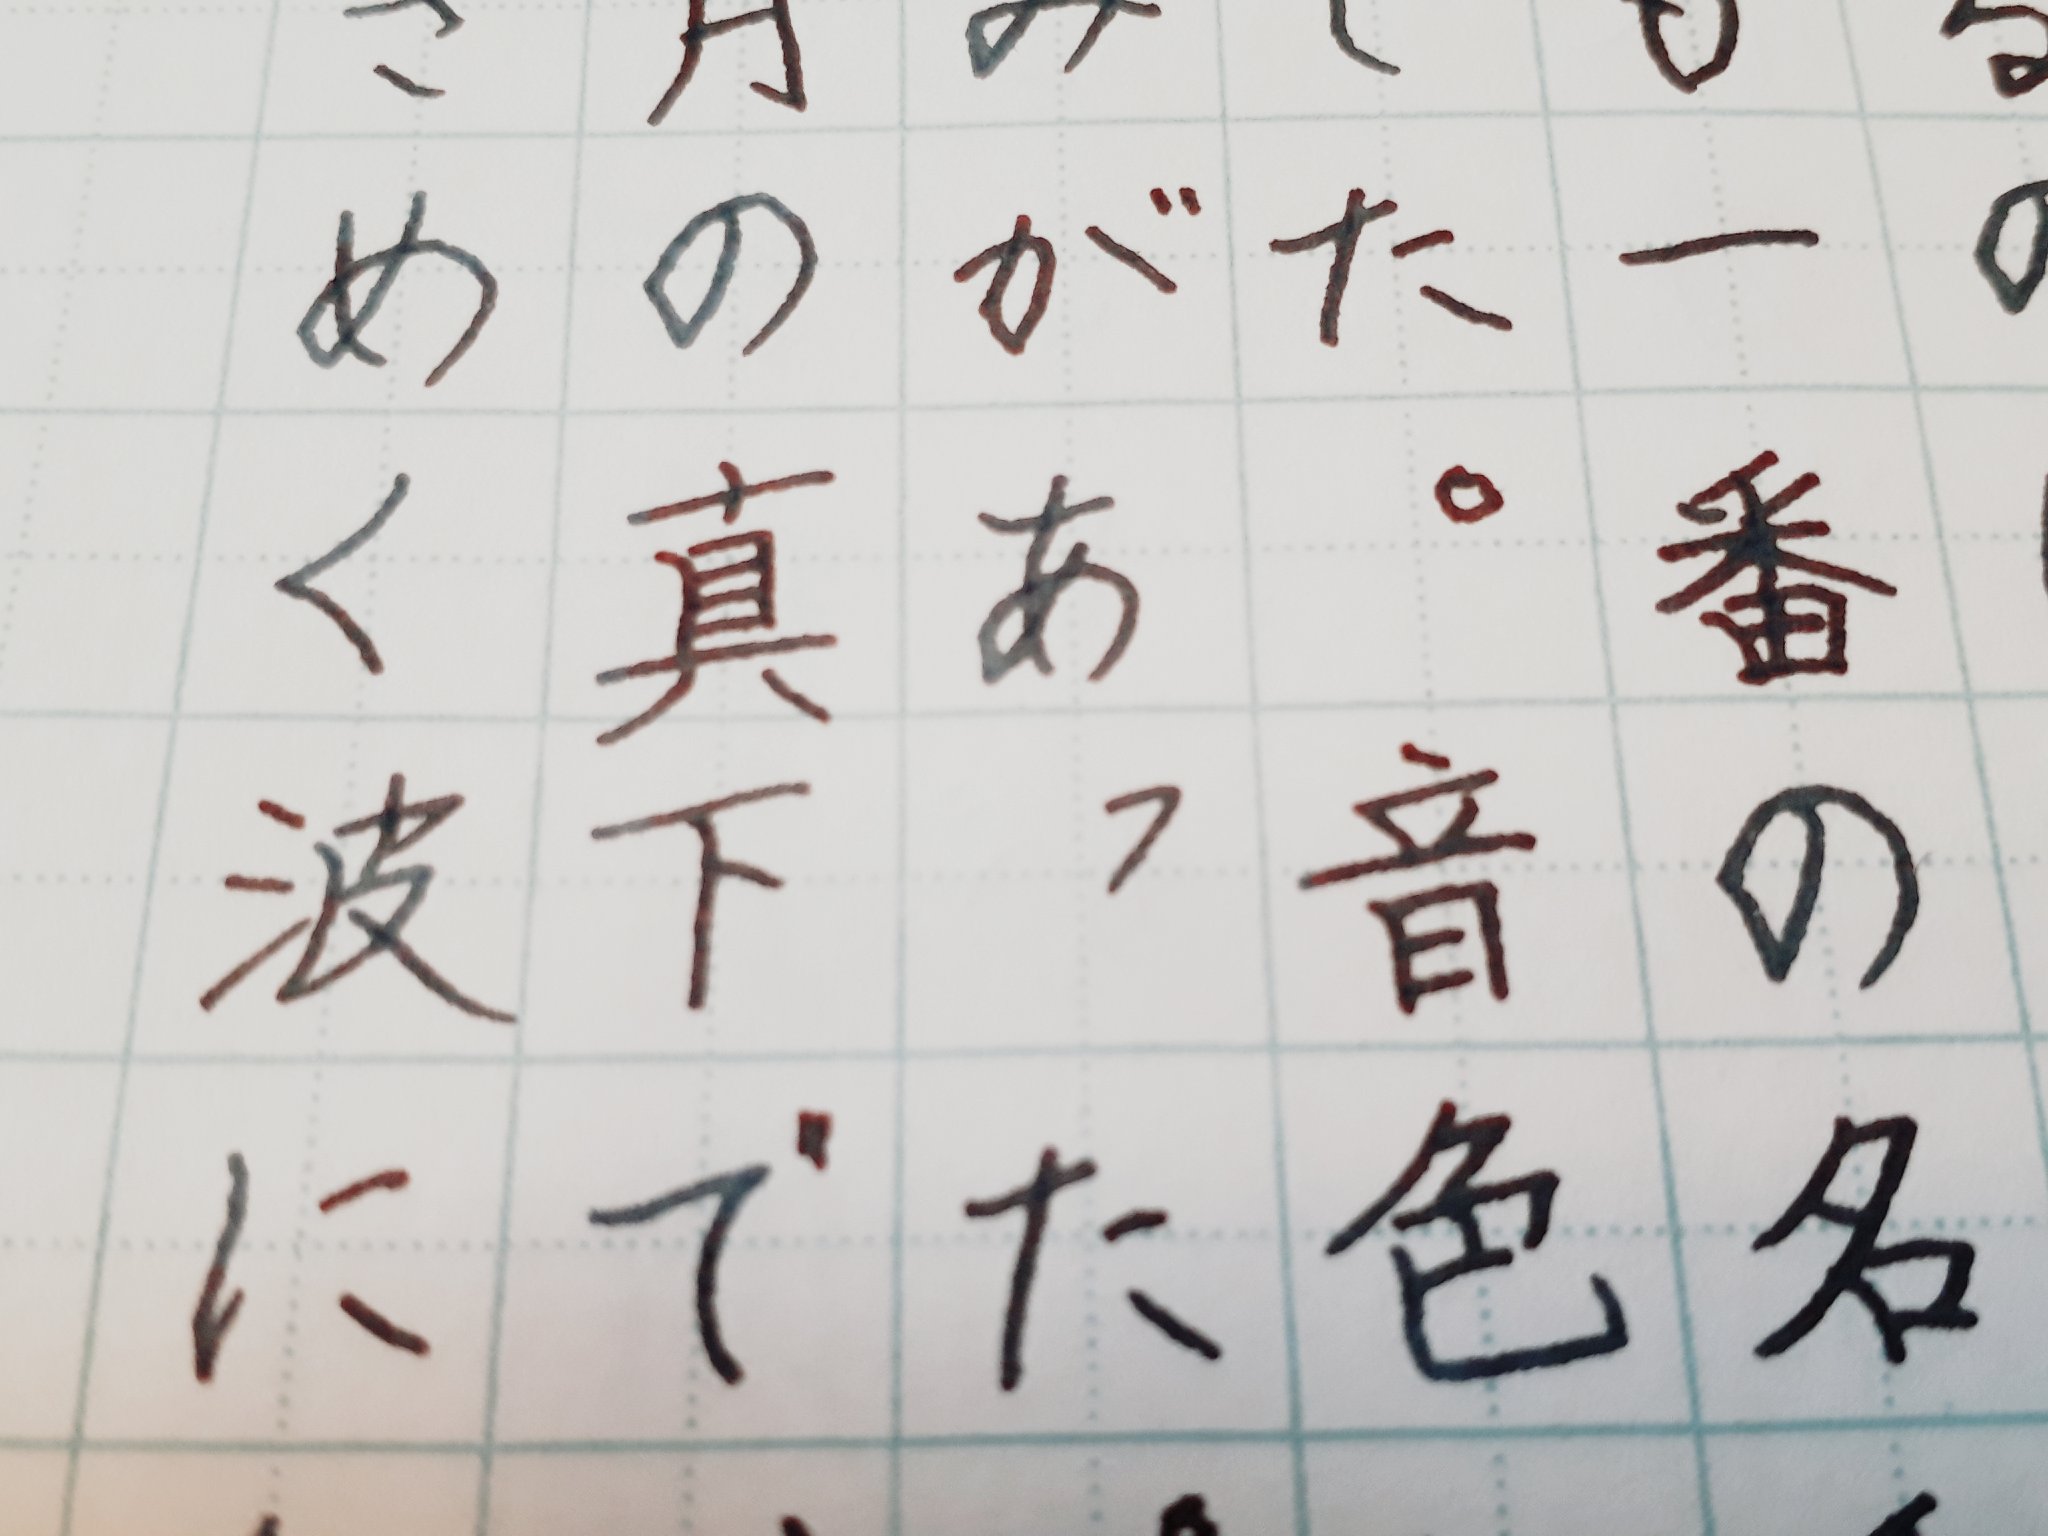 るの
も一番の名
た。音色
みがあった
月の真下で
めく波に